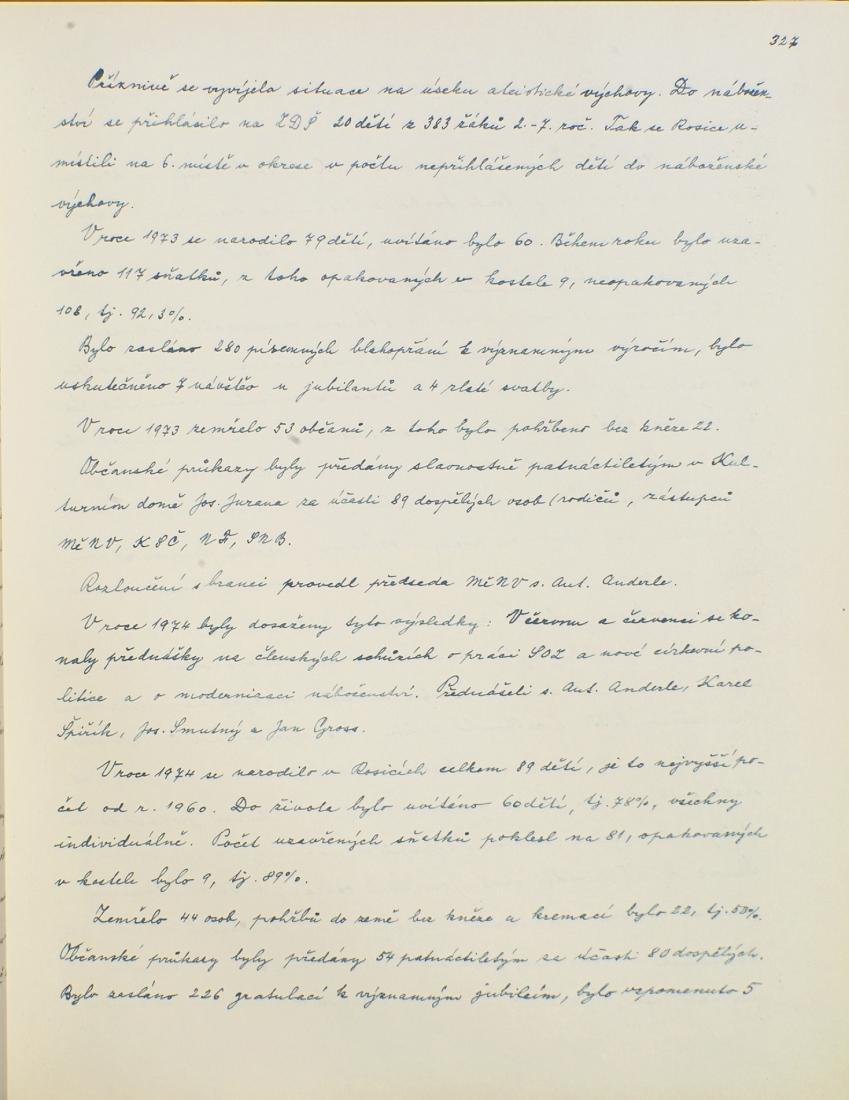 327
Příznivě se vyvíjela situace na úseku ateistické výchovy. Do nábožen-
ství se přihlásilo na ZDŠ 20 dětí z 383 žáků 2.-7. roč. Tak se Rosice u-
místili na 6. místě v okrese v počtu nepřihlášených dětí do náboženské
výchovy.
V roce 1973 se narodilo 79 dětí, uvítáno bylo 60. Během roku bylo uza-
vřeno 117 sňatků, z toho opakovaných v kostele 9, neopakovaných
108, tj. 92,3%.
Bylo zasláno 280 písemných blahopřání k významným výročím, bylo
uskutečněno 7 návštěv u jubilantů a 4 zlaté svatby.
V roce 1973 zemřelo 53 občanů, z toho bylo pohřbeno bez kněze 22.
Občanské průkazy byly předány slavnostně patnáctiletým v Kul-
turním domě Jos. Jurana za účasti 89 dospělých osob (rodičů, zástupců
MěNV, KSČ, NF, SNB.
Rozloučení s branci provedl předseda MěNV s. Ant. Anderle.
V roce 1974 byly dosaženy tyto výsledky: V červnu a červenci se ko-
naly přednášky na členských schůzích o práci SOZ a nové církevní po-
litice a o modernizaci náboženství. Přednášeli s. Ant. Anderle, Karel
Špiřík, Jos. Smutný a Jan Gross.
V roce 1974 se narodilo v Rosicích celkem 89 dětí, je to nejvyšší po-
čet od r. 1960. Do života bylo uvítáno 60 dětí, tj. 78%, všechny
individuálně. Počet uzavřených sňatků poklesl na 81, opakovaných
v kostele bylo 9, tj. 89%.
Zemřelo 44 osob, pohřbů do země bez kněze a kremací bylo 22, tj. 50%.
Občanské průkazy byly předány 54 patnáctiletým za účasti 80 dospělých.
Bylo zasláno 226 gratulací k významným jubileím, bylo vzpomenuto 5